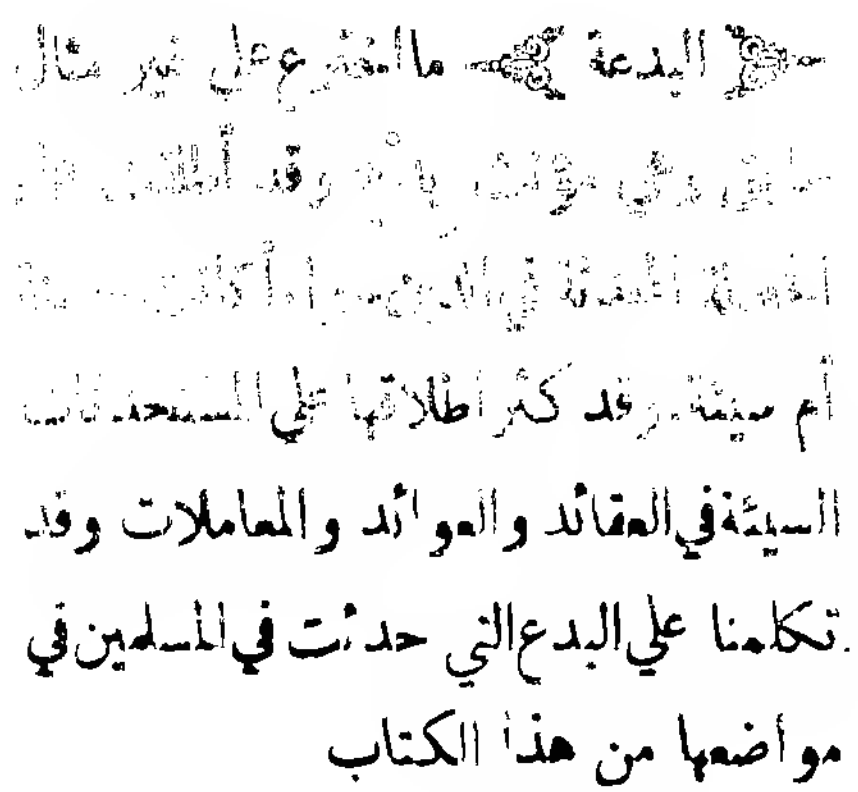 البدعة ما اخترع على غير مثال
سابق وهي مؤنث وقد أطلقت على
الخصلة في الدين سواء أكانت حسنة
أم سيئة. وقد كثر اطلاقها على المستحدثات
السيئة في العقائد والعوائد والمعاملات وقد
تكلمنا علي البدع التي حدثت في المسلمين في
مواضعها من هذا الكتاب